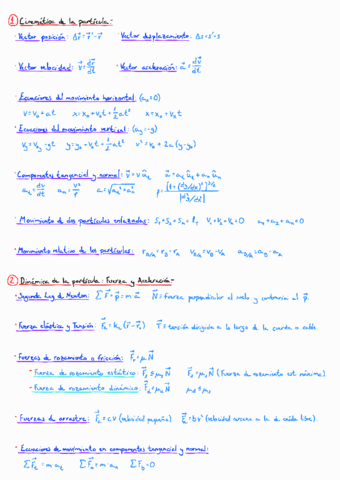 1 Cinemática de la partícula:-
· Vector posición: Δr⃗ = r⃗' - r⃗   · Vector desplazamiento: Δs = s' - s
· Vector velocidad: v⃗ = dr⃗/dt   · Vector aceleración: a⃗ = dv⃗/dt
· Ecuaciones del movimiento horizontal: (a₀=0)
v = v₀ + at   x = x₀ + v₀t + 1/2 at²   x = x₀ + v₀t
· Ecuaciones del movimiento vertical: (ay = -g)
vy = v₀y - gt   y = y₀ - v₀t - 1/2 at²   v² = v₀² + 2a(y - y₀)
· Componentes tangencial y normal: v⃗ = v û_t   a⃗ = a_t û_t + a_n û_n
a_t = dv/dt   a_n = v²/ρ   a = √(a_t² + a_n²)   ρ = [1 + (dy/dx)²]^(3/2) / |d²y/dx²|
· Movimiento de dos partículas enlazadas: S₁ + S₂ + S_n = l_T   V₁ + V₂ + V_n = 0   a₁ + a₂ + a_n = 0
· Movimiento relativo de las partículas: r_B/A = r_B - r_A   v_B/A = v_B - v_A   a_B/A = a_B - a_A
2 Dinámica de la partícula: Fuerza y Aceleración-
· Segunda Ley de Newton: Σ F⃗ = p⃗ = m a⃗   N⃗ = fuerza perpendicular al suelo y contraria al p⃗.
· Fuerza elástica y Tensión: F⃗ₑ = kₑ (r⃗ - r⃗₀)   T⃗ = tensión dirigida a lo largo de la cuerda o cable.
· Fuerzas de rozamiento o fricción: F⃗r = μ N⃗
- Fuerza de rozamiento estático: F⃗s ≤ μs N⃗   F⃗s = μs N⃗ (Fuerza de rozamiento est. máxima).
- Fuerza de rozamiento dinámico: F⃗d = μd N⃗   μd ≤ μs
· Fuerzas de arrastre: F⃗ = cv (velocidad pequeña)   F⃗ = bv² (velocidad cercana a la de caída libre).
· Ecuaciones de movimiento en componentes tangencial y normal:
Σ F⃗t = m·at   Σ F⃗n = m·an   Σ Fb = 0